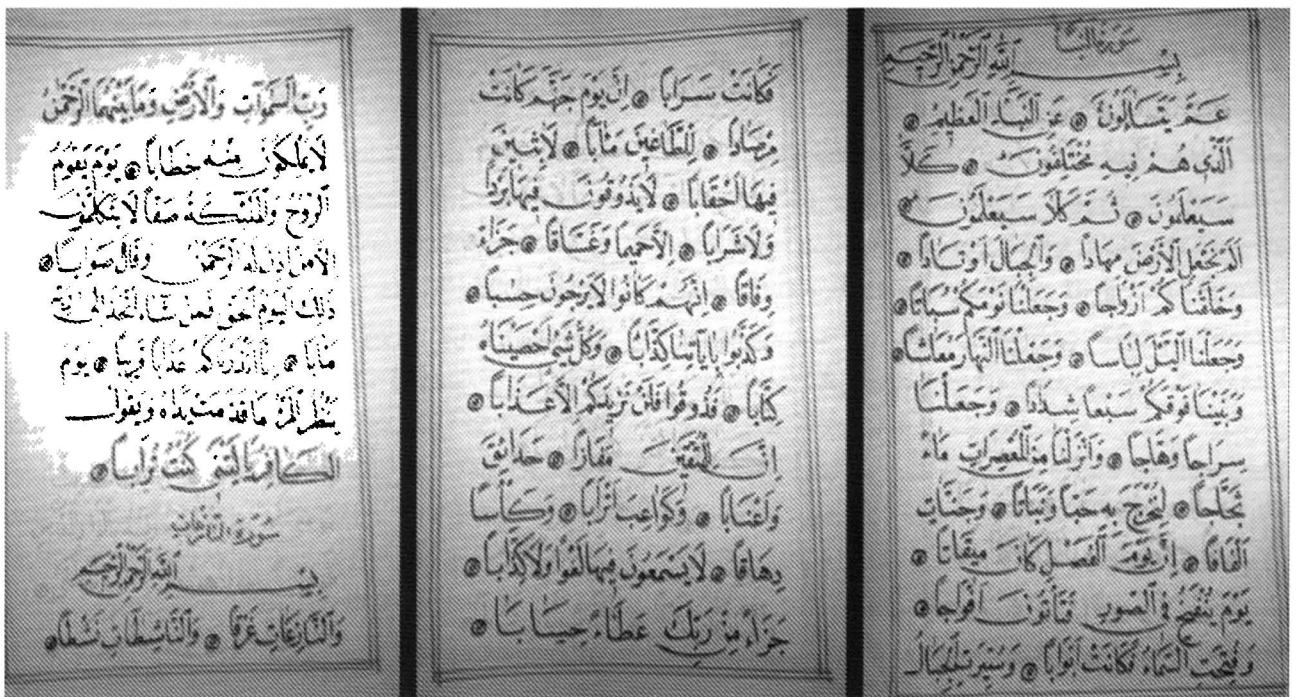 سورة النبأ
بِسْمِ اللهِ الرَّحْمٰنِ الرَّحِيمِ
عَمَّ يَتَسَاءَلُونَ ۝ عَنِ النَّبَإِ الْعَظِيمِ ۝
الَّذِي هُمْ فِيهِ مُخْتَلِفُونَ ۝ كَلَّا
سَيَعْلَمُونَ ۝ ثُمَّ كَلَّا سَيَعْلَمُونَ ۝
اَلَمْ نَجْعَلِ الْاَرْضَ مِهَاداً ۝ وَالْجِبَالَ اَوْتَاداً ۝
وَخَلَقْنَاكُمْ اَزْوَاجاً ۝ وَجَعَلْنَا نَوْمَكُمْ سُبَاتاً ۝
وَجَعَلْنَا الَّيْلَ لِبَاساً ۝ وَجَعَلْنَا النَّهَارَ مَعَاشاً ۝
وَبَنَيْنَا فَوْقَكُمْ سَبْعاً شِدَاداً ۝ وَجَعَلْنَا
سِرَاجاً وَهَّاجاً ۝ وَاَنْزَلْنَا مِنَ الْمُعْصِرَاتِ مَاءً
ثَجَّاجاً ۝ لِنُخْرِجَ بِهِ حَبّاً وَنَبَاتاً ۝ وَجَنَّاتٍ
اَلْفَافاً ۝ اِنَّ يَوْمَ الْفَصْلِ كَانَ مِيقَاتاً ۝
يَوْمَ يُنْفَخُ فِي الصُّورِ فَتَأْتُونَ اَفْوَاجاً ۝
وَفُتِحَتِ السَّمَاءُ فَكَانَتْ اَبْوَاباً ۝ وَسُيِّرَتِ الْجِبَالُ
فَكَانَتْ سَرَاباً ۝ اِنَّ يَوْمَ جَهَنَّمَ كَانَتْ
مِرْصَاداً ۝ لِلطَّاغِينَ مَاٰباً ۝ لَابِثِينَ
فِيهَا اَحْقَاباً ۝ لَا يَذُوقُونَ فِيهَا بَرْداً
وَلَا شَرَاباً ۝ اِلَّا حَمِيماً وَغَسَّاقاً ۝ جَزَاءً
وِفَاقاً ۝ اِنَّهُمْ كَانُوا لَا يَرْجُونَ حِسَاباً ۝
وَكَذَّبُوا بِاٰيَاتِنَا كِذَّاباً ۝ وَكُلَّ شَيْءٍ اَحْصَيْنَاهُ
كِتَاباً ۝ فَذُوقُوا فَلَنْ نَزِيدَكُمْ اِلَّا عَذَاباً ۝
اِنَّ لِلْمُتَّقِينَ مَفَازاً ۝ حَدَائِقَ
وَاَعْنَاباً ۝ وَكَوَاعِبَ اَتْرَاباً ۝ وَكَأْساً
دِهَاقاً ۝ لَا يَسْمَعُونَ فِيهَا لَغْواً وَلَا كِذَّاباً ۝
جَزَاءً مِنْ رَبِّكَ عَطَاءً حِسَاباً ۝
رَبِّ السَّمٰوَاتِ وَالْاَرْضِ وَمَا بَيْنَهُمَا الرَّحْمٰنِ
لَا يَمْلِكُونَ مِنْهُ خِطَاباً ۝ يَوْمَ يَقُومُ
الرُّوحُ وَالْمَلٰئِكَةُ صَفّاً لَا يَتَكَلَّمُونَ
اِلَّا مَنْ اَذِنَ لَهُ الرَّحْمٰنُ وَقَالَ صَوَاباً ۝
ذٰلِكَ الْيَوْمُ الْحَقُّ فَمَنْ شَاءَ اتَّخَذَ اِلٰى رَبِّهِ
مَاٰباً ۝ اِنَّا اَنْذَرْنَاكُمْ عَذَاباً قَرِيباً ۝ يَوْمَ
يَنْظُرُ الْمَرْءُ مَا قَدَّمَتْ يَدَاهُ وَيَقُولُ
الْكَافِرُ يَا لَيْتَنِي كُنْتُ تُرَاباً ۝
سورة النازعات
بِسْمِ اللهِ الرَّحْمٰنِ الرَّحِيمِ
وَالنَّازِعَاتِ غَرْقاً ۝ وَالنَّاشِطَاتِ نَشْطاً ۝